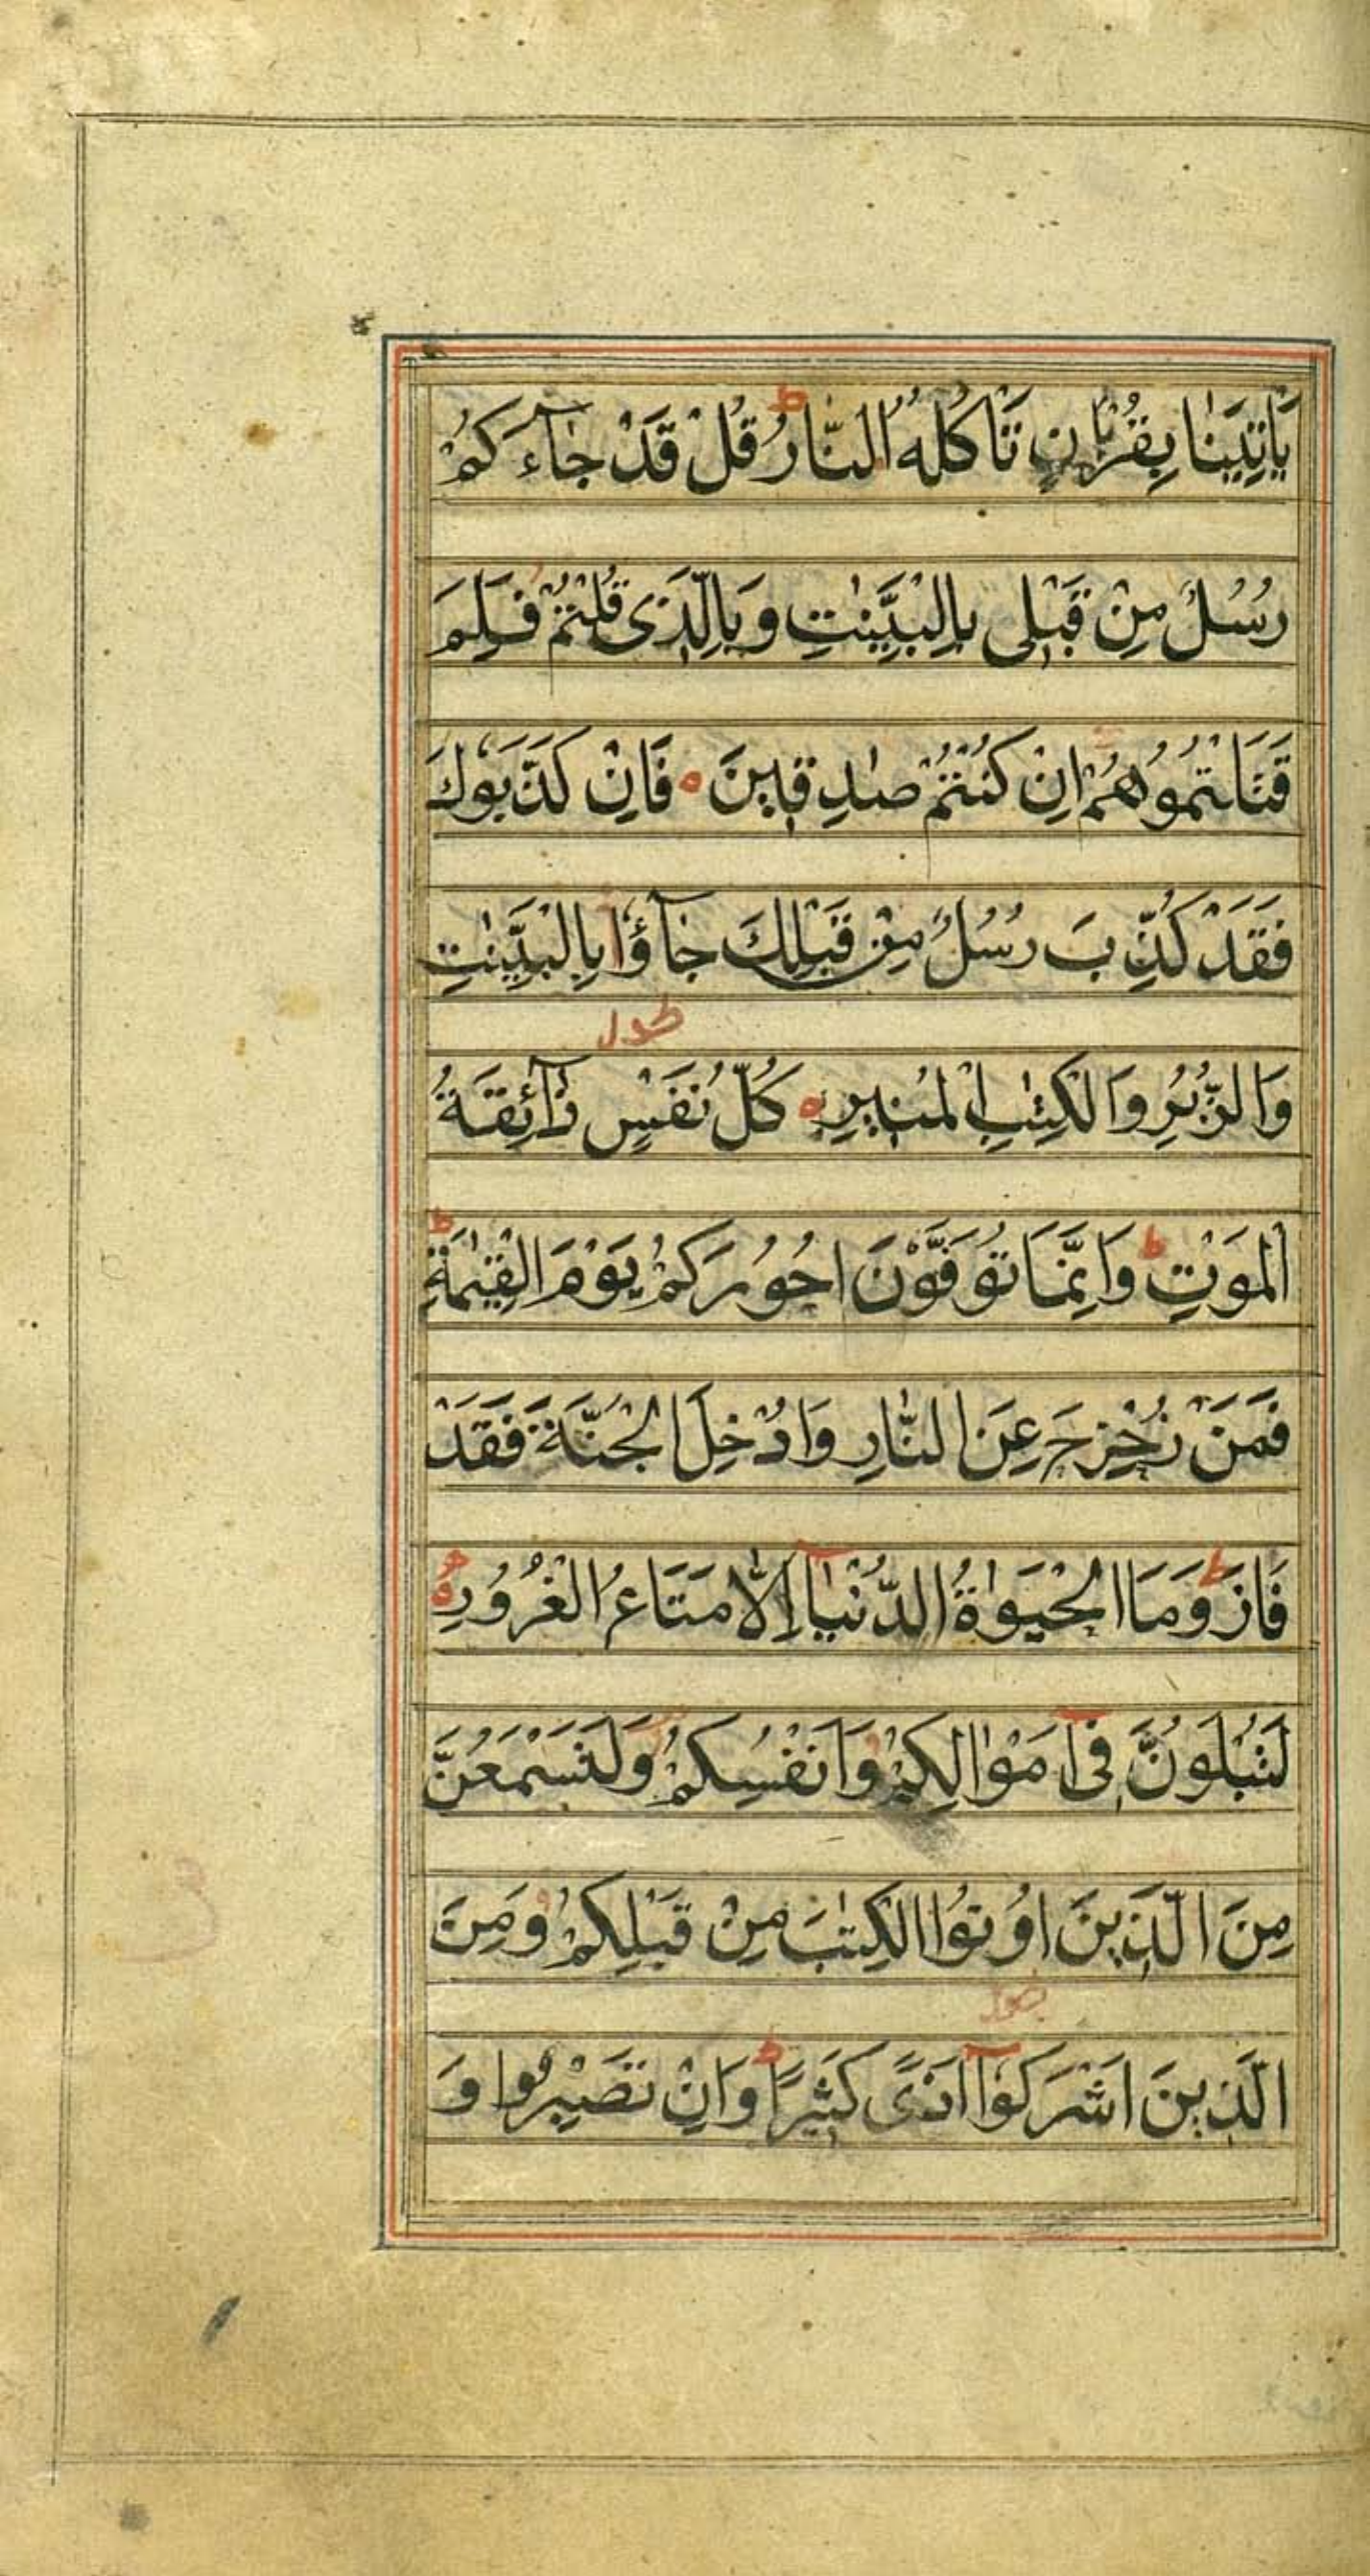 يَاْتِيَنَا بِقُرْبَانٍ تَاْكُلُهُ النَّارُ ط قُلْ قَدْ جَآءَكُمْ
رُسُلٌ مِنْ قَبْلِى بِالْبَيِّنٰتِ وَبِالَّذِى قُلْتُمْ فَلِمَ
قَتَلْتُمُوهُمْ اِنْ كُنْتُمْ صٰدِقِينَ ه فَاِنْ كَذَّبُوكَ
فَقَدْ كُذِّبَ رُسُلٌ مِنْ قَبْلِكَ جَآؤُا بِالْبَيِّنٰتِ
طول
وَالزُّبُرِ وَالْكِتٰبِ الْمُنِيرِ ه كُلُّ نَفْسٍ ذَآئِقَةُ
الْمَوْتِ ط وَاِنَّمَا تُوَفَّوْنَ اُجُورَكُمْ يَوْمَ الْقِيٰمَةِ ط
فَمَنْ زُحْزِحَ عَنِ النَّارِ وَاُدْخِلَ الْجَنَّةَ فَقَدْ
فَازَ ط وَمَا الْحَيٰوةُ الدُّنْيَآ اِلَّا مَتَاعُ الْغُرُورِ ه
لَتُبْلَوُنَّ فِىٓ اَمْوَالِكُمْ وَاَنْفُسِكُمْ وَلَتَسْمَعُنَّ
مِنَ الَّذِينَ اُوتُوا الْكِتٰبَ مِنْ قَبْلِكُمْ وَمِنَ
الَّذِينَ اَشْرَكُوٓا اَذًى كَثِيرًا ط وَاِنْ تَصْبِرُوا وَ